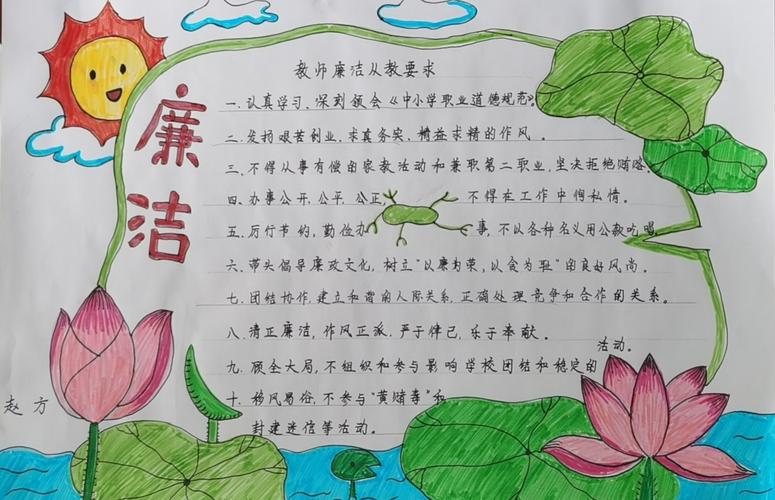 廉洁
教师廉洁从教要求
一.认真学习,深刻领会《中小学职业道德规范》
二.发扬艰苦创业,求真务实、精益求精的作风。
三.不得从事有偿的家教活动和兼职第二职业,坚决拒绝贿赂.
四.办事公开,公平,公正,不得在工作中徇私情。
五.厉行节约,勤俭办事,不以各种名义用公款吃喝
六.带头倡导廉政文化,树立“以廉为荣,以贪为耻”的良好风尚。
七.团结协作,建立和谐的人际关系,正确处理竞争和合作的关系。
八.清正廉洁,作风正派.严于律己,乐于奉献.
九.顾全大局,不组织和参与影响学校团结和稳定的
活动。
十.移风易俗,不参与“黄赌毒”和
封建迷信等活动。
赵方